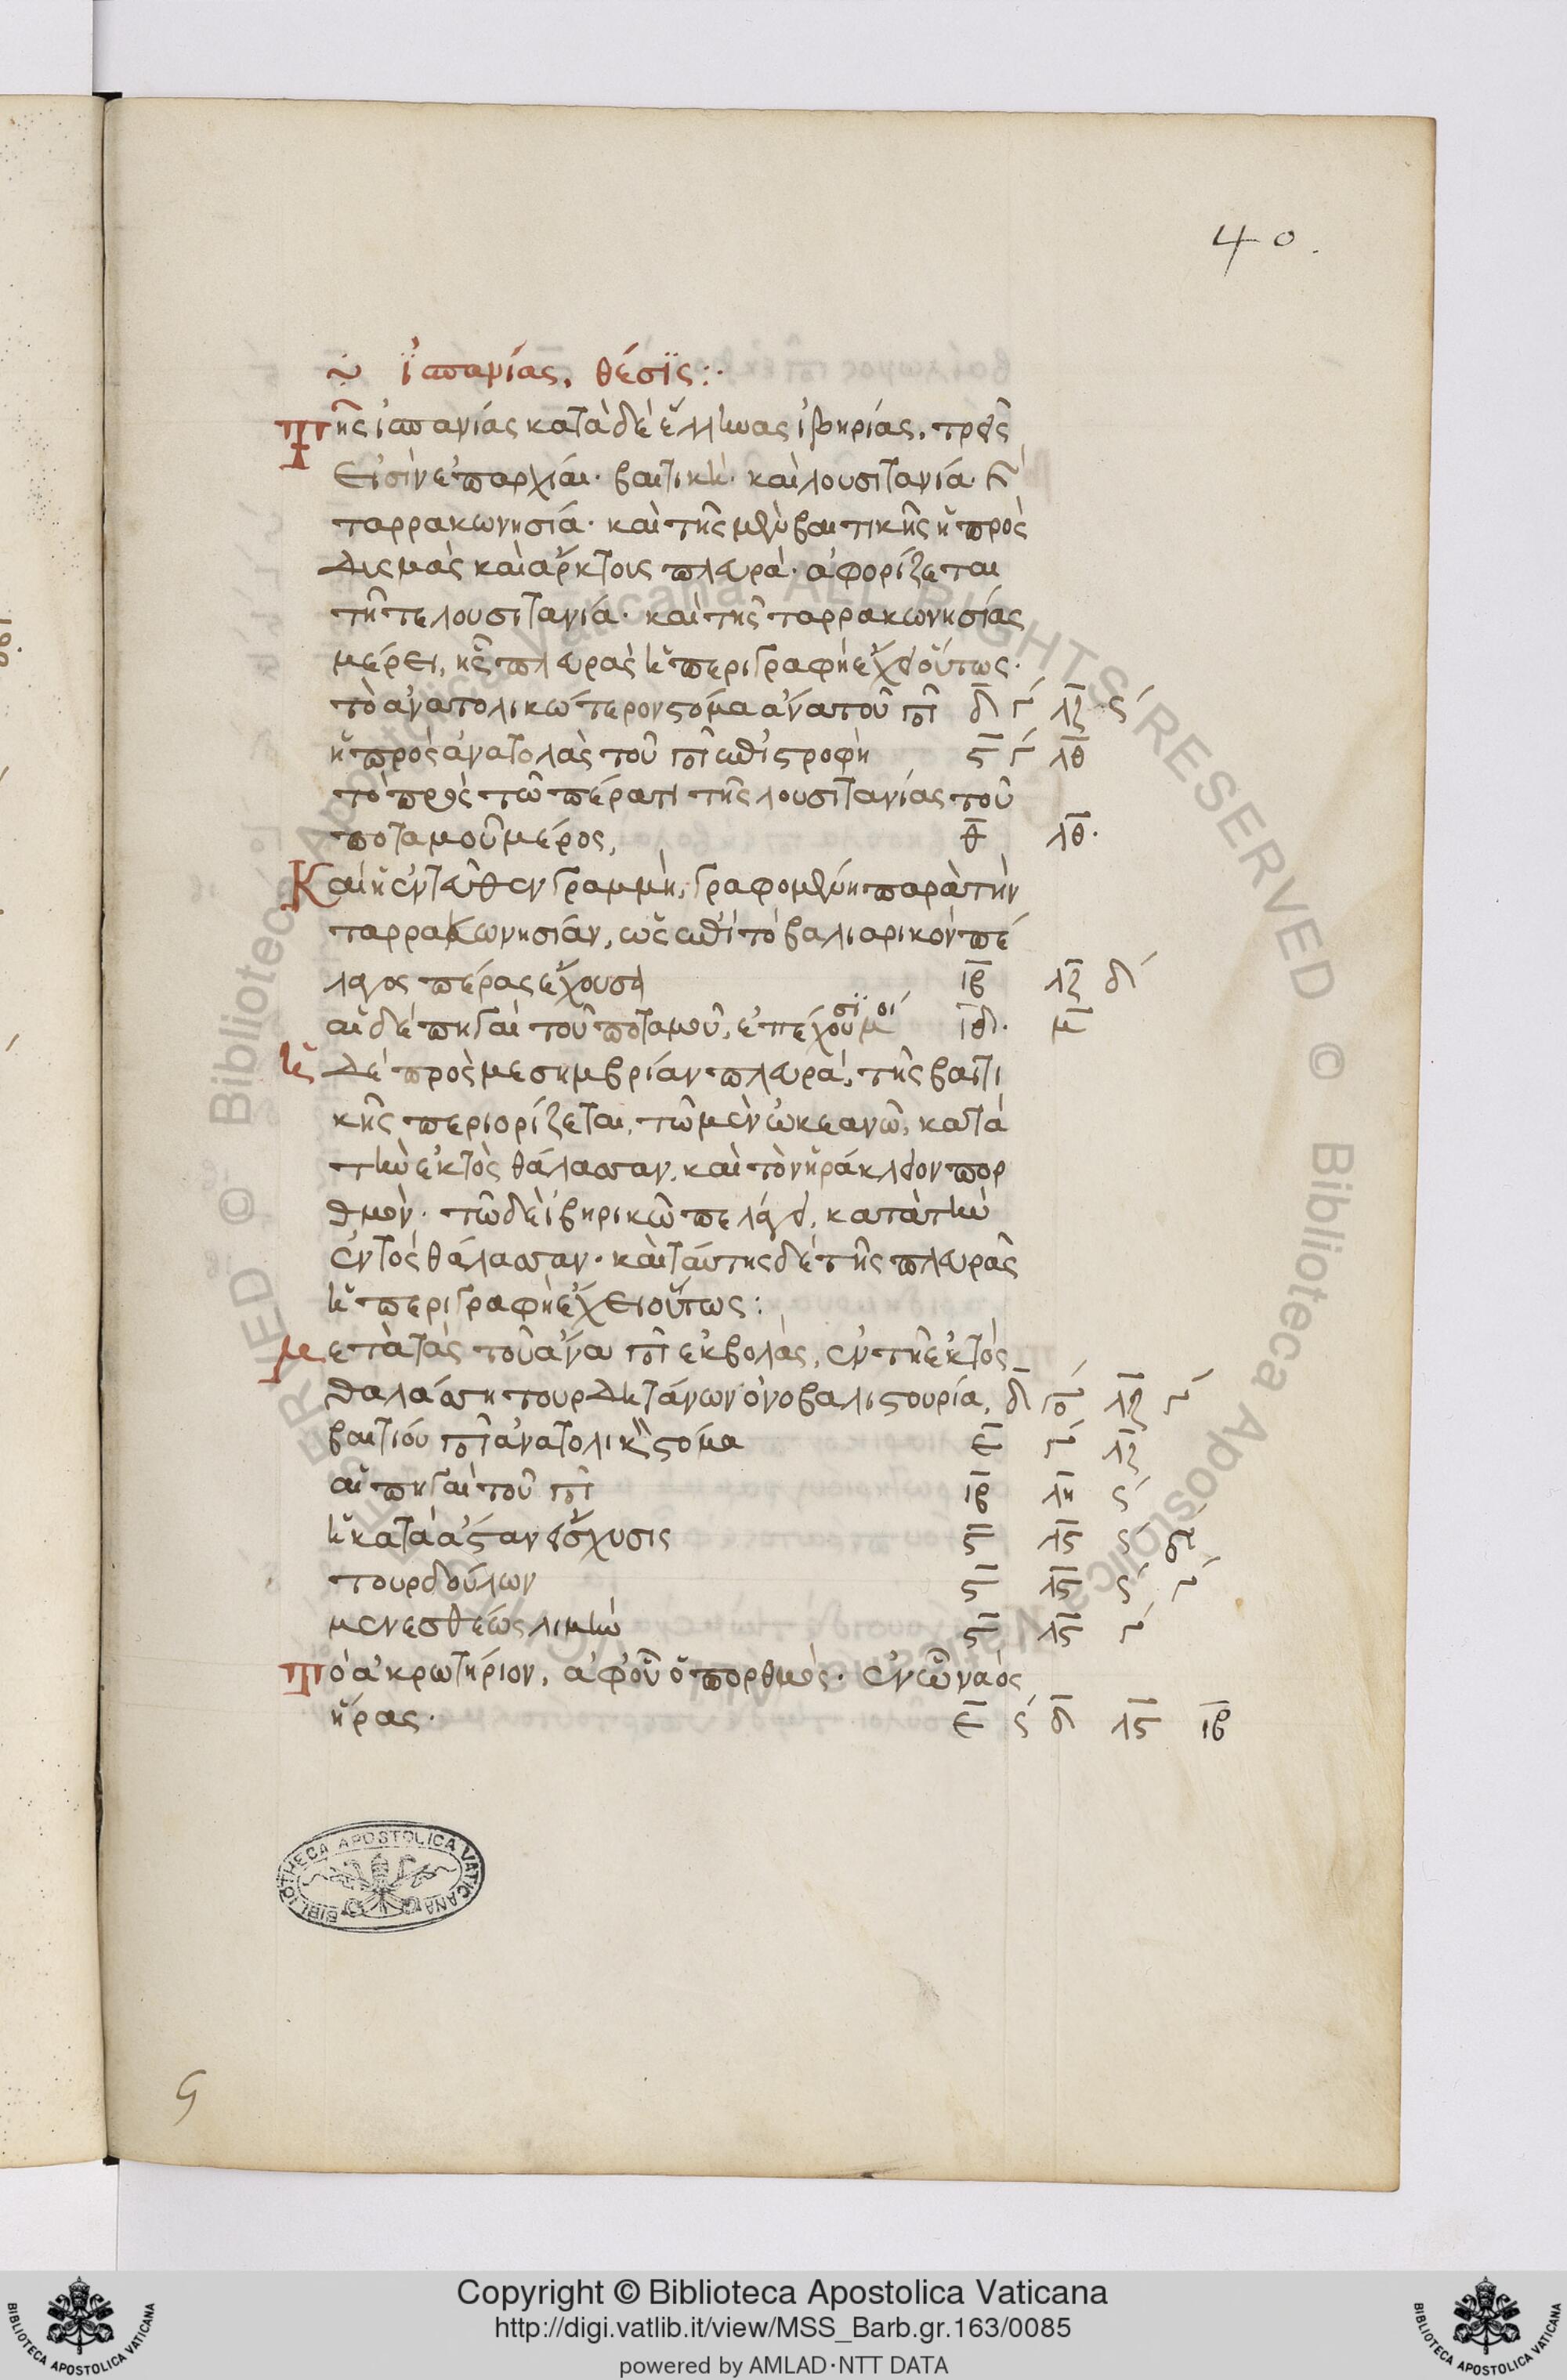 40.
ἱσπανίας, θέσϊς:·
Τῆς ἰσπανίας κατὰ δὲ ἕλληνας ἰβηρίας, τρεῖς
εἰσὶν ἐπαρχίαι· βαιτικὴ· καὶ λουσιτανία· καὶ
ταρρακωνησία· καὶ τῆς μὲν βαιτικῆς ἡ πρὸς
δισμὰς καὶ ἄρκτοις πλευρὰ· ἀφορίζεται
τῆ τε λουσιτανία· καὶ τῆς ταρρακωνησίας
μέρει, ἧς πλευρᾶς ἡ περιγραφὴ ἔχει οὕτως·
τὸ ἀνατολικώτερον στόμα ἄνα τοῦ πο δ γ λζ ς
ἡ πρὸς ἀνατολὰς τοῦ πο ἐπιστροφὴ ς γ λθ
τὸ πρὸς τῶ πέρατι τῆς λουσιτανίας τοῦ
ποταμοῦ μέρος, θ λθ·
Καὶ ἡ ἐντεῦθεν γραμμὴ, γραφομένη παρὰ τὴν
ταρρακωνησίαν, ὡς ἐπὶ τὸ βαλιαρικὸν πέ
λαγος πέρας ἔχουσα ιβ λζ δ
αἱ δὲ πηγαὶ τοῦ ποταμοῦ, ἐπέχουσϊ μοί ιδ· μ
Ἡ δὲ πρὸς μεσημβρίαν πλευρά, τῆς βαιτι
κῆς περιορίζεται, τῶ μὲν ὠκεανῶ, κατὰ
τὴν ἐκτὸς θάλασσαν, καὶ τὸν ἡράκλειον πορ
θμὸν· τῶ δὲ ἰβηρικῶ πελάγει, κατὰ τὴν
ἐντὸς θάλασσαν· καὶ ταύτης δὲ τῆς πλευρᾶς
ἡ περιγραφὴ ἔχει οὕτως:
Μετὰ τὰς τοῦ ἄνα πο ἐκβολὰς, ἐν τῆ ἐκτὸς
θαλάσση τουρδητάνων ὀνοβαλιστουρία, δ γο λζ γ
βαιτίου πο ἀνατολικ στόμα ε γ λζ
αἱ πηγαὶ τοῦ πο ιβ λη ς
ἡ κατὰ ἄσταν εἴσχυσις ς λς ς δ
τουρδούλων ς λς ς γ
μενεσθέως λιμὴν ς λς γ
Τὸ ἀκρωτήριον, ἀφ οὗ ὁ πορθμὸς· ἐν ὧ ναὸς
ἥρας· ε ς δ λς ιβ
BIBLIOTHECA APOSTOLICA VATICANA
Copyright © Biblioteca Apostolica Vaticana
http://digi.vatlib.it/view/MSS_Barb.gr.163/0085
powered by AMLAD·NTT DATA